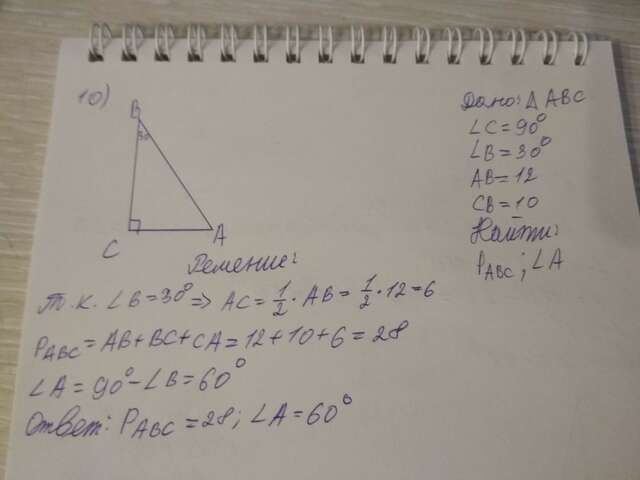 10)
B
30
C
A
Дано: Δ ABC
∠C=90°
∠B=30°
AB=12
CB=10
Найти:
P_ABC; ∠A
Решение:
Т.к. ∠B=30° => AC= 1/2 · AB= 1/2 · 12=6
P_ABC=AB+BC+CA=12+10+6=28
∠A=90°-∠B=60°
Ответ: P_ABC=28; ∠A=60°